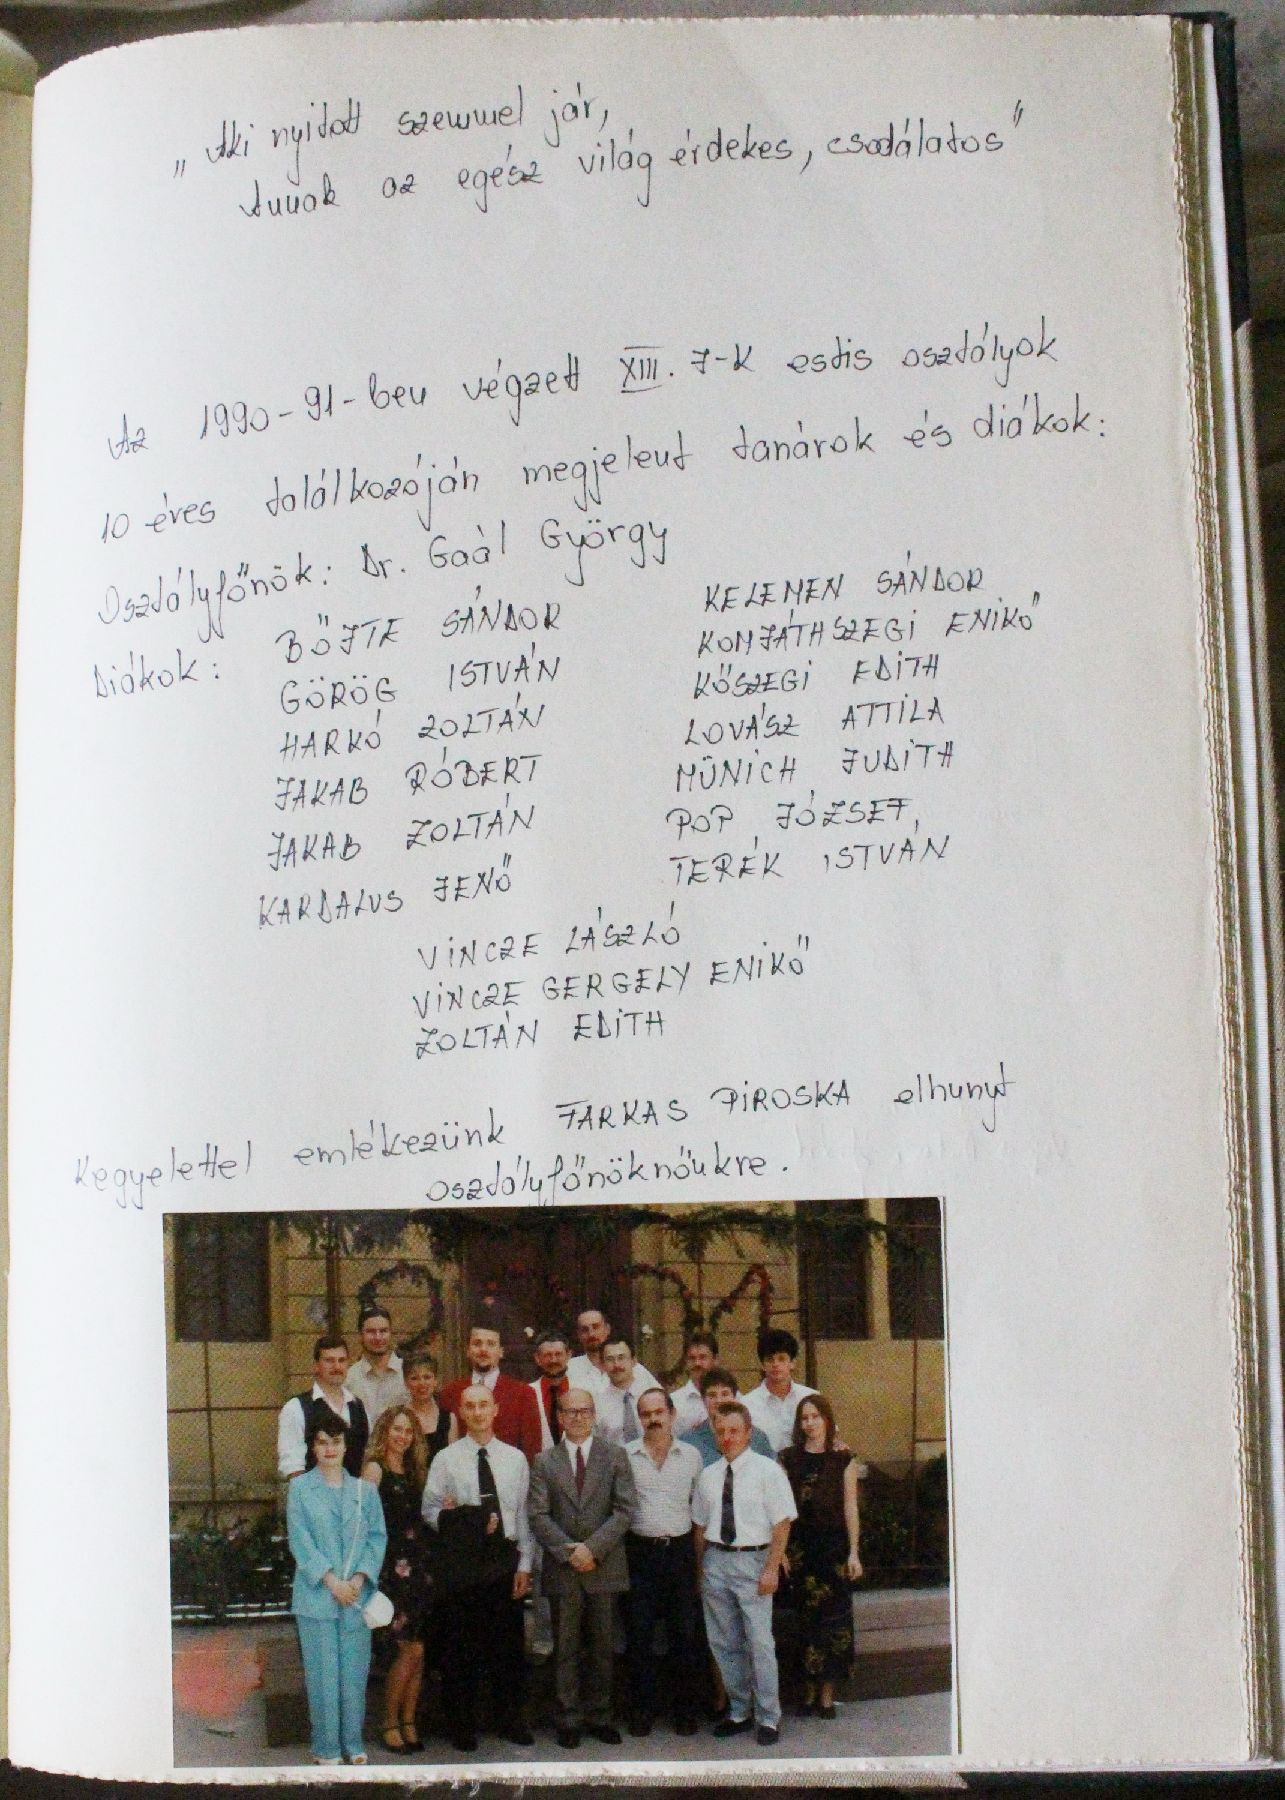 „Aki nyitott szemmel jár,
Annak az egész világ érdekes, csodálatos"
Az 1990-91-ben végzett XIII. J-K estis osztályok
10 éves találkozóján megjelent tanárok és diákok:
Osztályfőnök: Dr. Gaál György
Diákok:
BŐJTE SÁNDOR
GÖRÖG ISTVÁN
HARKÓ ZOLTÁN
JAKAB RÓBERT
JAKAB ZOLTÁN
KARDALUS JENŐ
KELEMEN SÁNDOR
KOMJÁTHSZEGI ENIKŐ
KŐSZEGI EDITH
LOVÁSZ ATTILA
MÜNICH JUDITH
POP JÓZSEF,
TERÉK ISTVÁN
VINCZE LÁSZLÓ
VINCZE GERGELY ENIKŐ
ZOLTÁN EDITH
Kegyelettel emlékezünk FARKAS PIROSKA elhunyt
osztályfőnöknőnkre.